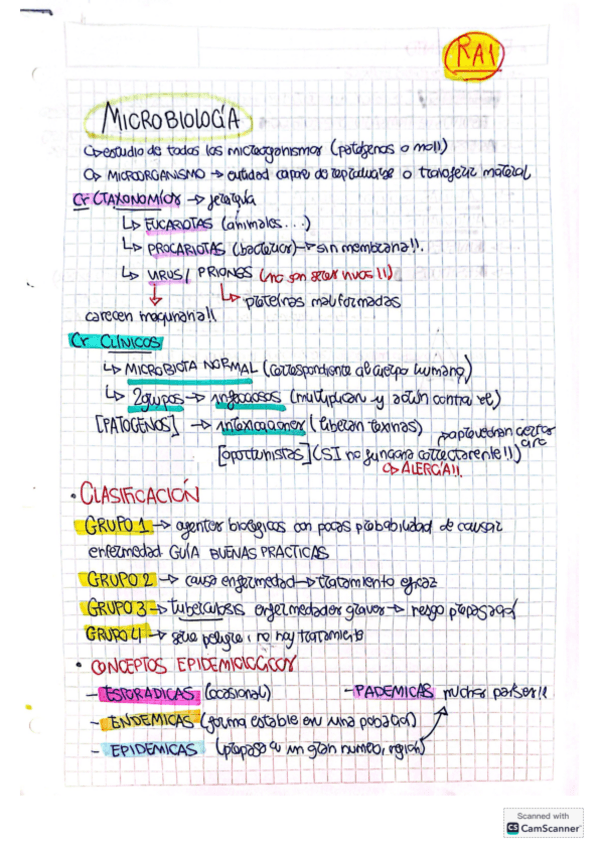 RA1
MICROBIOLOGÍA
↳ estudio de todos los microorganismos (patógenos o no!!)
↳ MICROORGANISMO → entidad capaz de reproducirse o transferir material
Cr (TAXONOMÍCOS → jerarquía
↳ EUCARIOTAS (animales...)
↳ PROCARIOTAS (bacterias) → sin membrana!!.
↳ VIRUS / PRIONES (no son seres vivos!!)
↳ proteínas malformadas
carecen maquinaria!!
Cr CLÍNICOS
↳ MICROBIOTA NORMAL (correspondiente al cuerpo humano)
↳ 2 grupos → infecciosos (multiplican y actún contra el)
[PATÓGENOS] → intoxicaciones (liberan toxinas)
↳ aprovechan ciertas
[oportunistas] (SI no funciona correctamente!!)
↳ ALERGIA!!
• CLASIFICACIÓN
GRUPO 1 → agentes biológicos con pocas probabilidad de causar
enfermedad GUÍA BUENAS PRACTICAS
GRUPO 2 → causa enfermedad → tratamiento eficaz
GRUPO 3 → tuberculosis enfermedades graves → riesgo propagació
GRUPO 4 → serio peligro, no hay tratamiento
• CONCEPTOS EPIDEMIOLOGICOS
- ESPORÁDICAS (ocasional) - PADEMICAS muchos países!!
- ENDEMICAS (forma estable en una población)
- EPIDEMICAS (propaga a un gran numero, región)
Scanned with
CS CamScanner